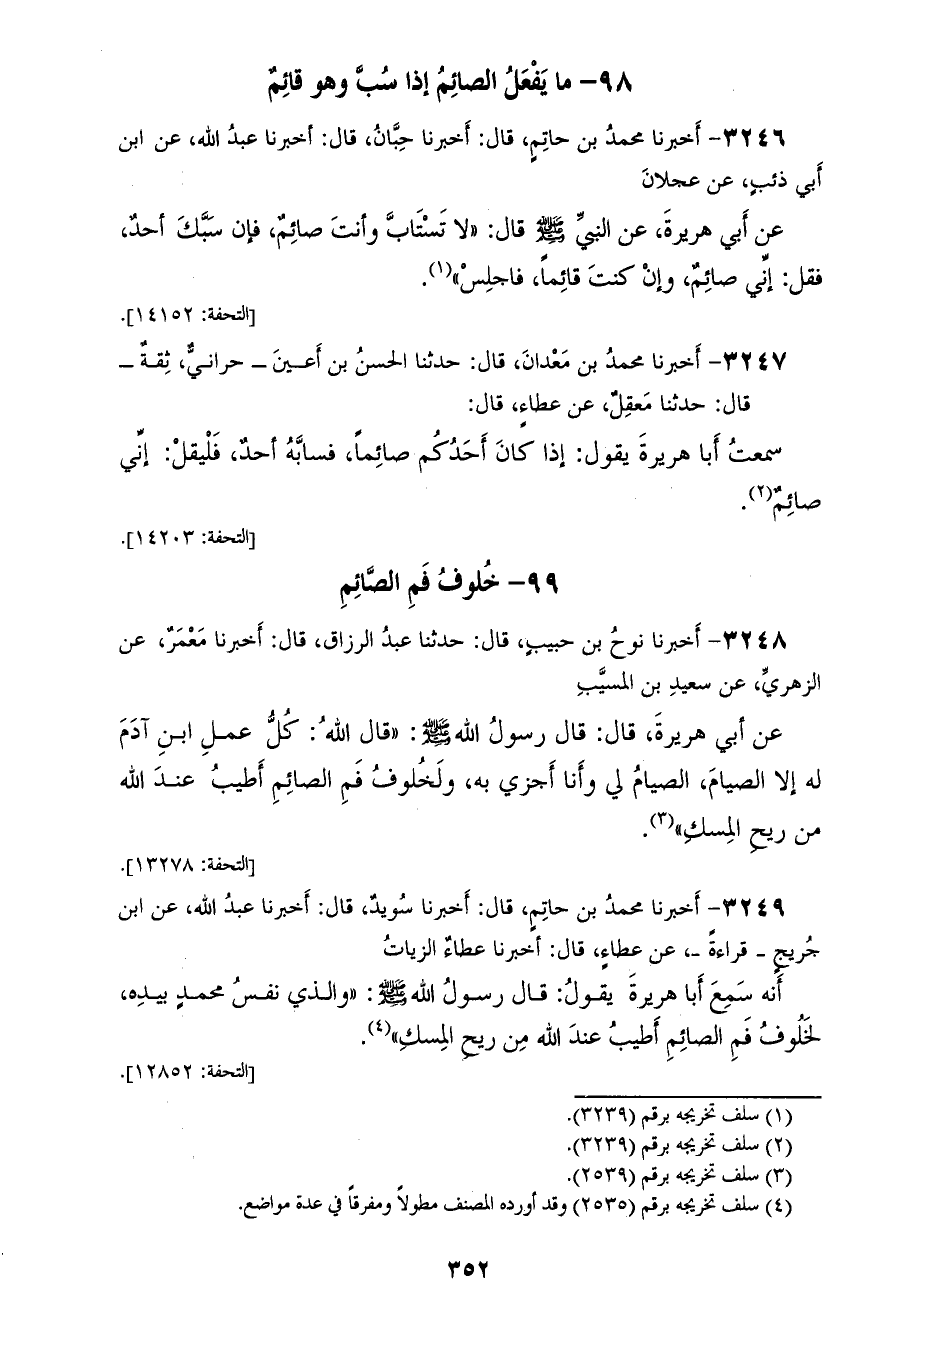 ٩٨- ما يَفْعَلُ الصائِمُ إذا سُبَّ وهو قائِمٌ
٣٢٤٦- أَخبرنا محمدُ بن حاتِمٍ، قال: أَخبرنا حِبَّانُ، قال: أخبرنا عبدُ الله، عن ابن
أَبي ذئبٍ، عن عجلانَ
عن أَبي هريرةَ، عن النبيِّ ﷺ قال: «لا تَسْتَابَّ وأنتَ صائِمٌ، فإن سَبَّكَ أحدٌ،
فقل: إنِّي صائِمٌ، وإنْ كنتَ قائِماً، فاجلِسْ»(١).
[التحفة: ١٤١٥٢].
٣٢٤٧- أَخبرنا محمدُ بن مَعْدانَ، قال: حدثنا الحسنُ بن أَعينَ ــ حرانيٌّ، ثِقةٌ ــ
قال: حدثنا مَعقِلٌ، عن عطاءٍ، قال:
سمعتُ أَبا هريرةَ يقول: إذا كانَ أَحَدُكُم صائِماً، فسابَّهُ أحدٌ، فَلْيقلْ: إنِّي
صائِمٌ(٢).
[التحفة: ١٤٢٠٣].
٩٩- خُلوفُ فَمِ الصَّائِمِ
٣٢٤٨- أَخبرنا نوحُ بن حبيبٍ، قال: حدثنا عبدُ الرزاق، قال: أَخبرنا مَعْمَرٌ، عن
الزهريِّ، عن سعيدِ بن المسيَّبِ
عن أبي هريرةَ، قال: قال رسولُ الله ﷺ: «قال اللهُ: كُلُّ عملِ ابنِ آدَمَ
له إلا الصيامَ، الصيامُ لي وأَنا أَجزي به، ولَخُلوفُ فَمِ الصائِمِ أَطيبُ عندَ الله
من ريحِ المِسكِ»(٣).
[التحفة: ١٣٢٧٨].
٣٢٤٩- أَخبرنا محمدُ بن حاتِمٍ، قال: أَخبرنا سُويدٌ، قال: أَخبرنا عبدُ الله، عن ابن
جُريجٍ ـ قراءةً ـ، عن عطاءٍ، قال: أخبرنا عطاءٌ الزياتُ
أَنه سَمِعَ أَبا هريرةَ يقولُ: قال رسولُ الله ﷺ: «والذي نفسُ محمدٍ بيدِه،
لَخُلُوفُ فَمِ الصائِمِ أَطيبُ عندَ الله مِن ريحِ المِسكِ»(٤).
[التحفة: ١٢٨٥٢].
(١) سلف تخريجه برقم (٣٢٣٩).
(٢) سلف تخريجه برقم (٣٢٣٩).
(٣) سلف تخريجه برقم (٢٥٣٩).
(٤) سلف تخريجه برقم (٢٥٣٥) وقد أورده المصنف مطولاً ومفرقاً في عدة مواضع.
٣٥٢